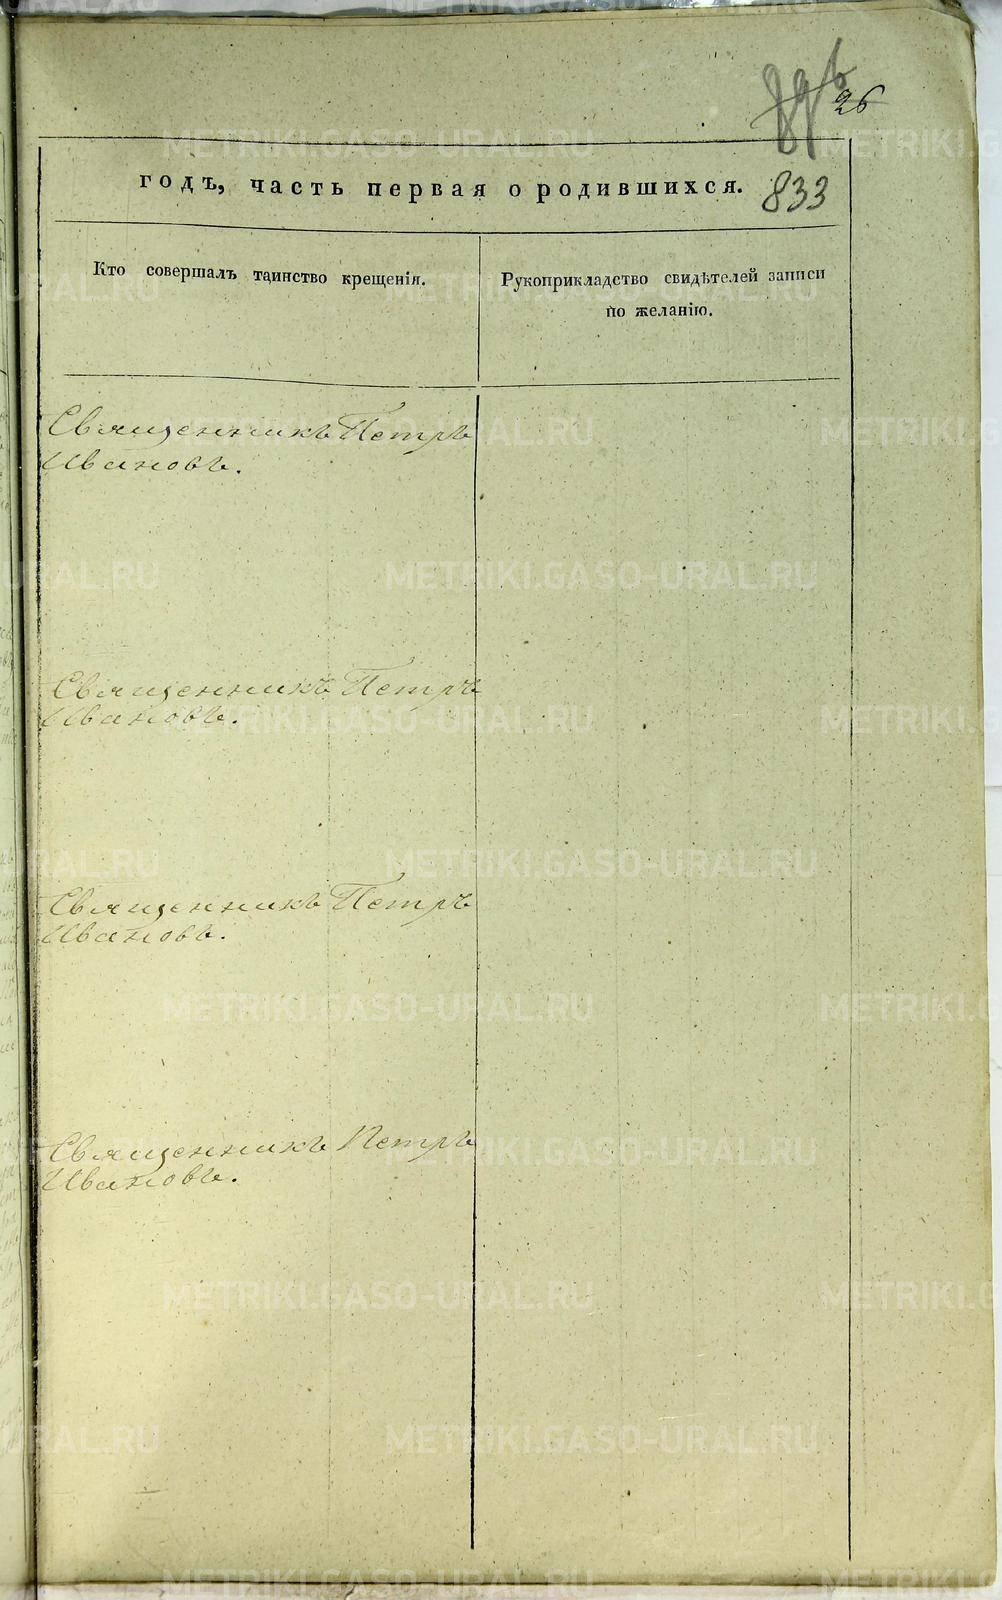 26
833
годъ, часть первая о родившихся.
Кто совершалъ таинство крещенія.
Рукоприкладство свидѣтелей записи
по желанію.
Священникъ Петръ
Ивановъ.
Священникъ Петръ
Ивановъ.
Священникъ Петръ
Ивановъ.
Священникъ Петръ
Ивановъ.
METRIKI.GASO-URAL.RU